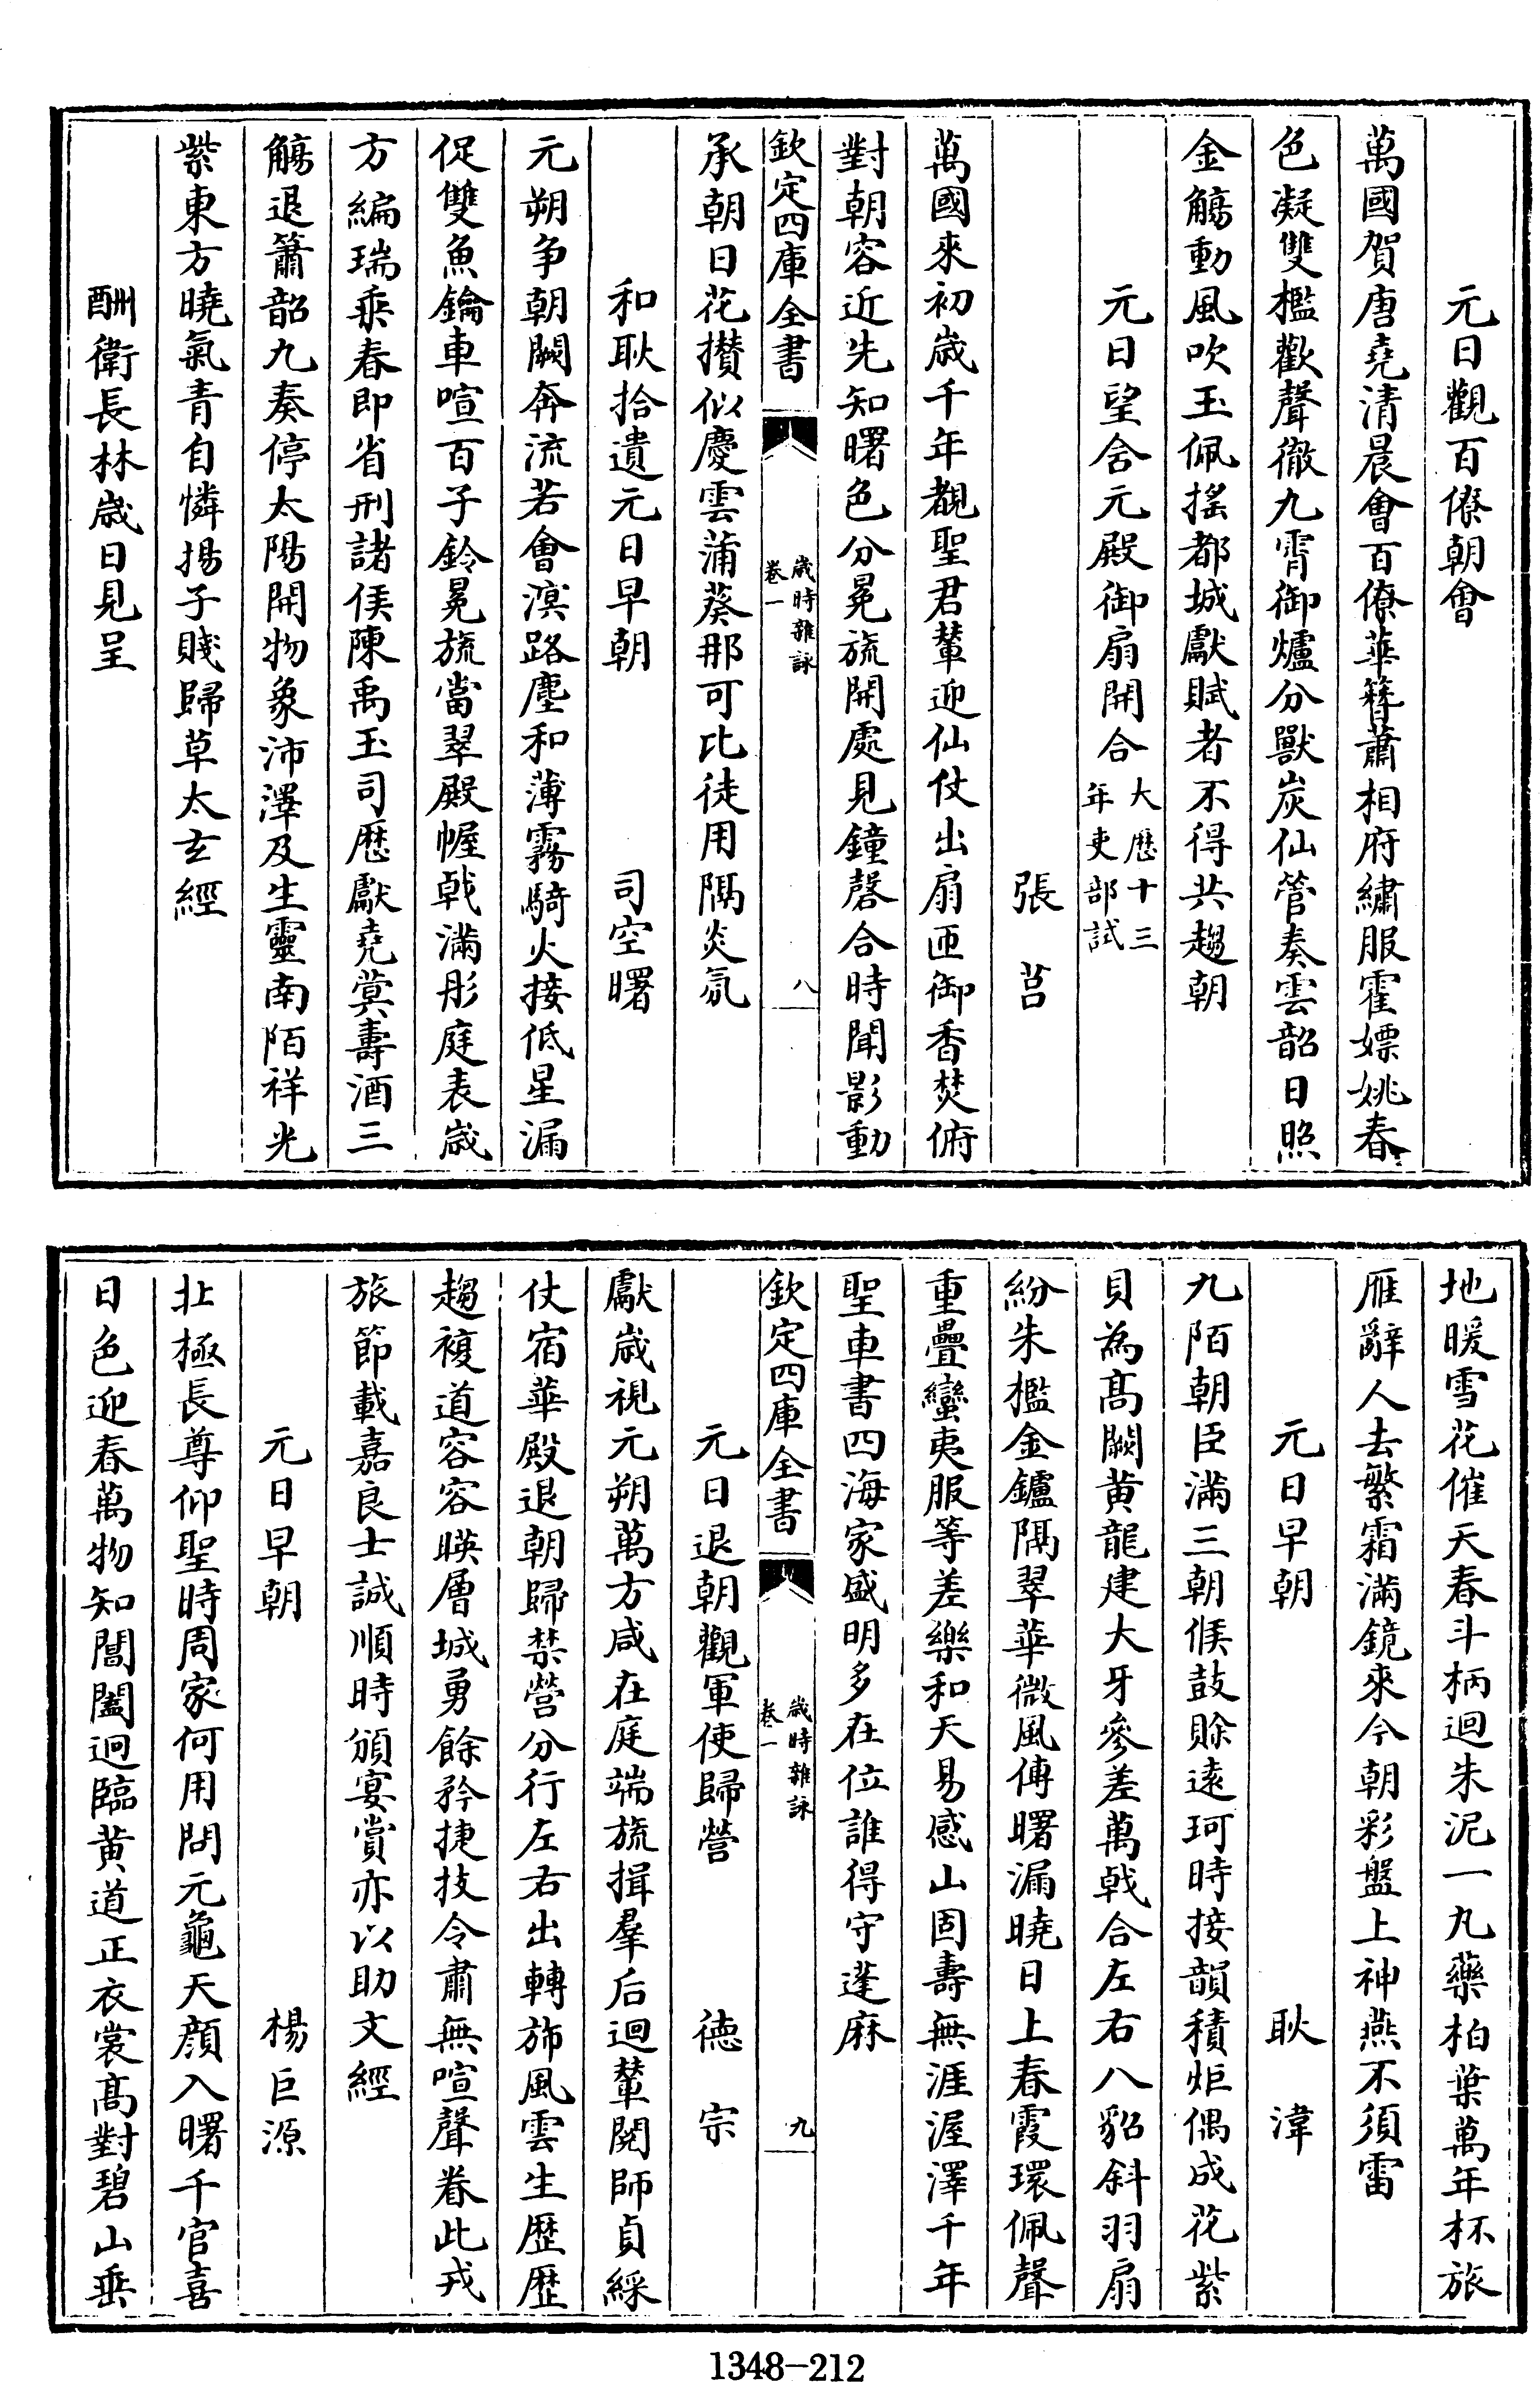 元日觀百僚朝會
萬國賀唐堯清晨會百僚華簪蕭相府繡服霍嫖姚春
色凝雙檻歡聲徹九霄御爐分獸炭仙管奏雲韶日照
金觴動風吹玉佩搖都城獻賦者不得共趨朝
元日望含元殿御扇開合大歴十三年吏部試
張莒
萬國來初歳千年覩聖君輦迎仙仗出扇匝御香焚俯
對朝容近先知曙色分冕旒開處見鐘磬合時聞影動
欽定四庫全書
歳時雜詠
卷一
八
承朝日花攅似慶雲蒲葵那可比徒用隔炎氛
和耿拾遺元日早朝 司空曙
元朔争朝闕奔流若會溟路塵和薄霧騎火接低星漏
促雙魚鑰車喧百子鈴冕旒當翠殿幄戟滿彤庭表歳
方編瑞乘春即省刑諸侯陳禹玉司歴獻堯蓂壽酒三
觴退簫韶九奏停太陽開物象沛澤及生靈南陌祥光
紫東方曉氣青自憐揚子賤歸草太玄經
酬衛長林歳日見呈
地暖雪花催天春斗柄迴朱泥一丸藥柏葉萬年杯旅
雁辭人去繁霜滿鏡來今朝彩盤上神燕不須雷
元日早朝 耿湋
九陌朝臣滿三朝候鼓賖遠珂時接韻積炬偶成花紫
貝為髙闕黄龍建大牙參差萬戟合左右八貂斜羽扇
紛朱檻金鑪隔翠華微風傳曙漏曉日上春霞環佩聲
重疊蠻夷服等差樂和天易感山固壽無涯渥澤千年
聖車書四海家盛明多在位誰得守蓬麻
欽定四庫全書
歳時雜詠
卷一
九
元日退朝觀軍使歸營 徳宗
獻歳視元朔萬方咸在庭端旒揖羣后迴輦閱師貞綵
仗宿華殿退朝歸禁營分行左右出轉斾風雲生歴歴
趨複道容容暎層城勇餘矜捷技令肅無喧聲眷此戎
旅節載嘉良士誠順時頒宴賞亦以助文經
元日早朝 楊巨源
北極長尊仰聖時周家何用問元龜天顔入曙千官喜
日色迎春萬物知閶闔迥臨黄道正衣裳髙對碧山垂
1348-212